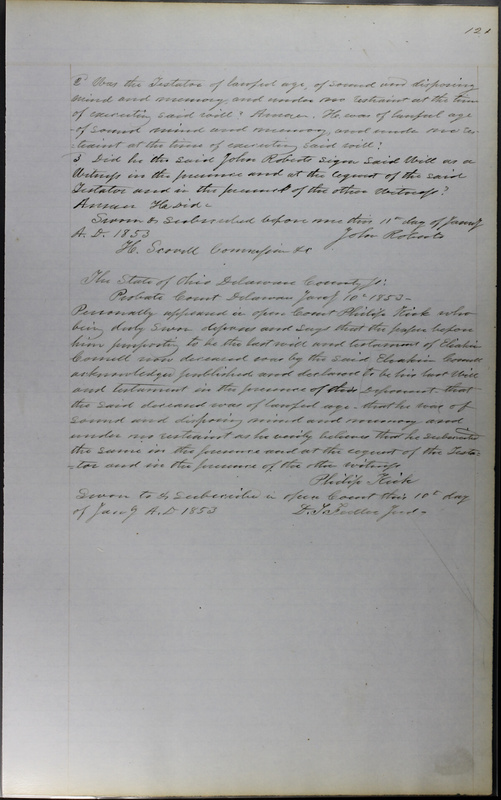 121
2 Was the Testator of lawful age, of sound and disposing
mind and memory, and under no restraint at the time
of executing said will? Answer. He was of lawful age
of sound mind and memory, and under no res-
traint at the time of executing said will.
3 Did he the said John Roberts sign said Will as a
Witness in the presence and at the request of the said
Testator and in the presence of the other Witness?
Answer He did
Sworn & Subscribed before me this 11th day of Jany
A. D. 1853 John Roberts
H. Scovell Commissioner &c
The State of Ohio Delaware County ss:
Probate Court Delaware Jany 10th 1853
Personally appeared in open Court Philip Kirk who
being duly Sworn deposes and Says that the paper before
him purporting to be the last will and testament of Eliakim
Cornell now deceased was by the said Eliakim Cornell
acknowledged published and declared to be his last Will
and testament in the presence of this deponent. that
the said deceased was of lawful age - that he was of
sound and disposing mind and memory and
under no restraint as he verily believes that he subscribed
the same in the presence and at the request of the Testa-
-tor and in the presence of the other witness
Philip Kirk
Sworn to & Subscribed in open Court this 10th day
of Jany A.D 1853 D. T. Fuller Jud-